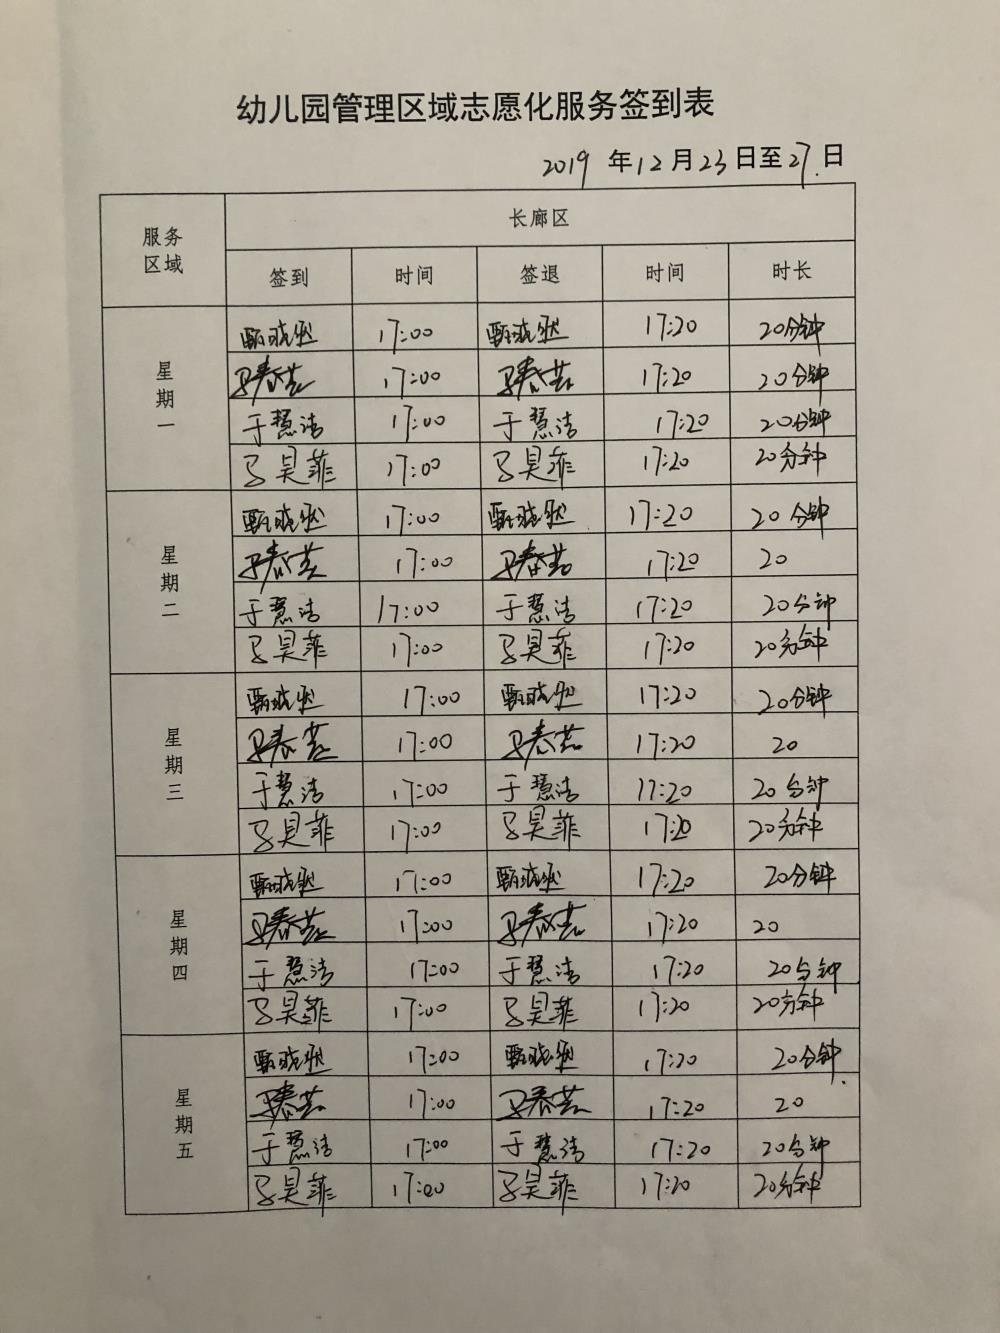 幼儿园管理区域志愿化服务签到表
2019 年 12 月 23 日至 27. 日
服务区域 长廊区
签到 时间 签退 时间 时长
星期一
甄晓 17:00 甄晓 17:20 20分钟
马春芸 17:00 马春芸 17:20 20分钟
于慧洁 17:00 于慧洁 17:20 20分钟
马昊菲 17:00 马昊菲 17:20 20分钟
星期二
甄晓 17:00 甄晓 17:20 20分钟
马春芸 17:00 马春芸 17:20 20
于慧洁 17:00 于慧洁 17:20 20分钟
马昊菲 17:00 马昊菲 17:20 20分钟
星期三
甄晓 17:00 甄晓 17:20 20分钟
马春芸 17:00 马春芸 17:20 20
于慧洁 17:00 于慧洁 17:20 20分钟
马昊菲 17:00 马昊菲 17:20 20分钟
星期四
甄晓 17:00 甄晓 17:20 20分钟
马春芸 17:00 马春芸 17:20 20
于慧洁 17:00 于慧洁 17:20 20分钟
马昊菲 17:00 马昊菲 17:20 20分钟
星期五
甄晓 17:00 甄晓 17:20 20分钟.
马春芸 17:00 马春芸 17:20 20
于慧洁 17:00 于慧洁 17:20 20分钟
马昊菲 17:00 马昊菲 17:20 20分钟